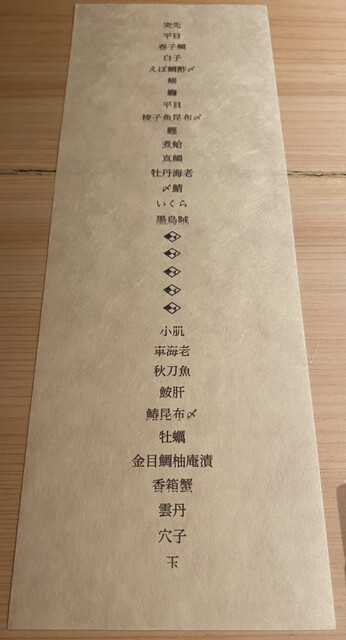 突先
平目
春子鯛
白子
えぼ鯛酢〆
平貝
梭子魚昆布〆
鰹
煮蛤
真鯛
牡丹海老
〆鯖
いくら
墨烏賊
小肌
車海老
秋刀魚
鮟肝
鰆昆布〆
牡蠣
金目鯛柚庵漬
香箱蟹
雲丹
穴子
玉